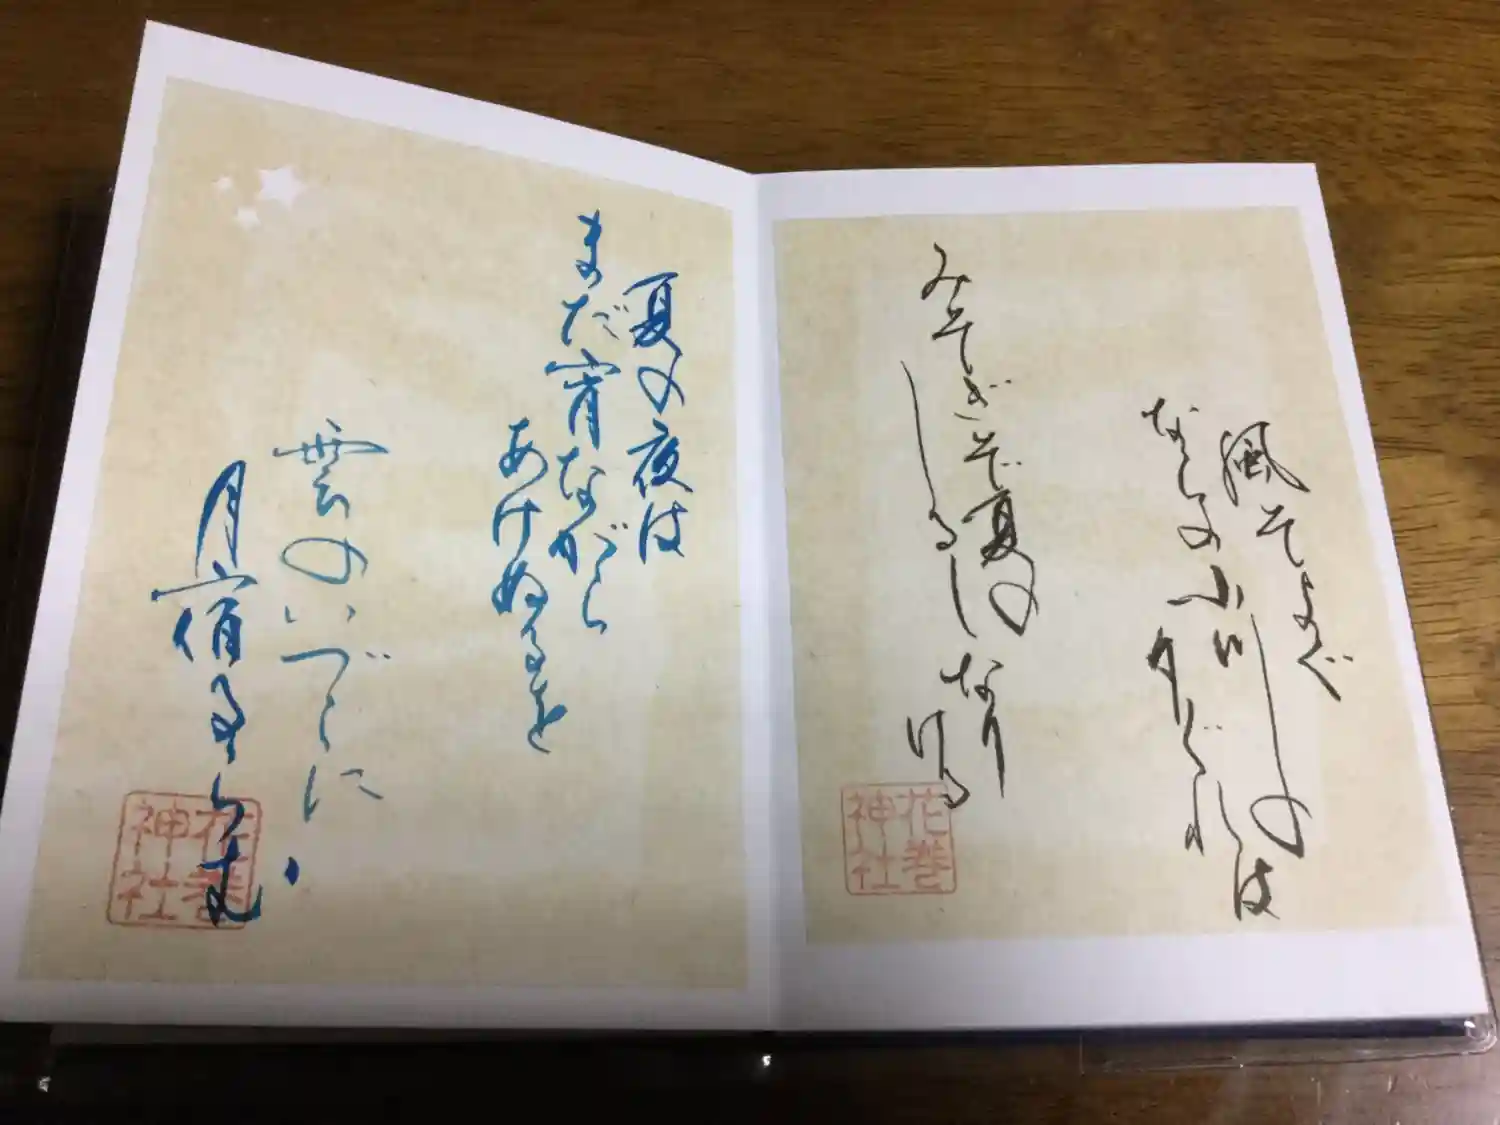 風そよぐ
ならの小川の
夕ぐれは
みそぎぞ夏の
しるしなり
ける
花巻
神社
夏の夜は
まだ宵ながら
あけぬるを
雲のいづこに
月宿るらむ
花巻
神社